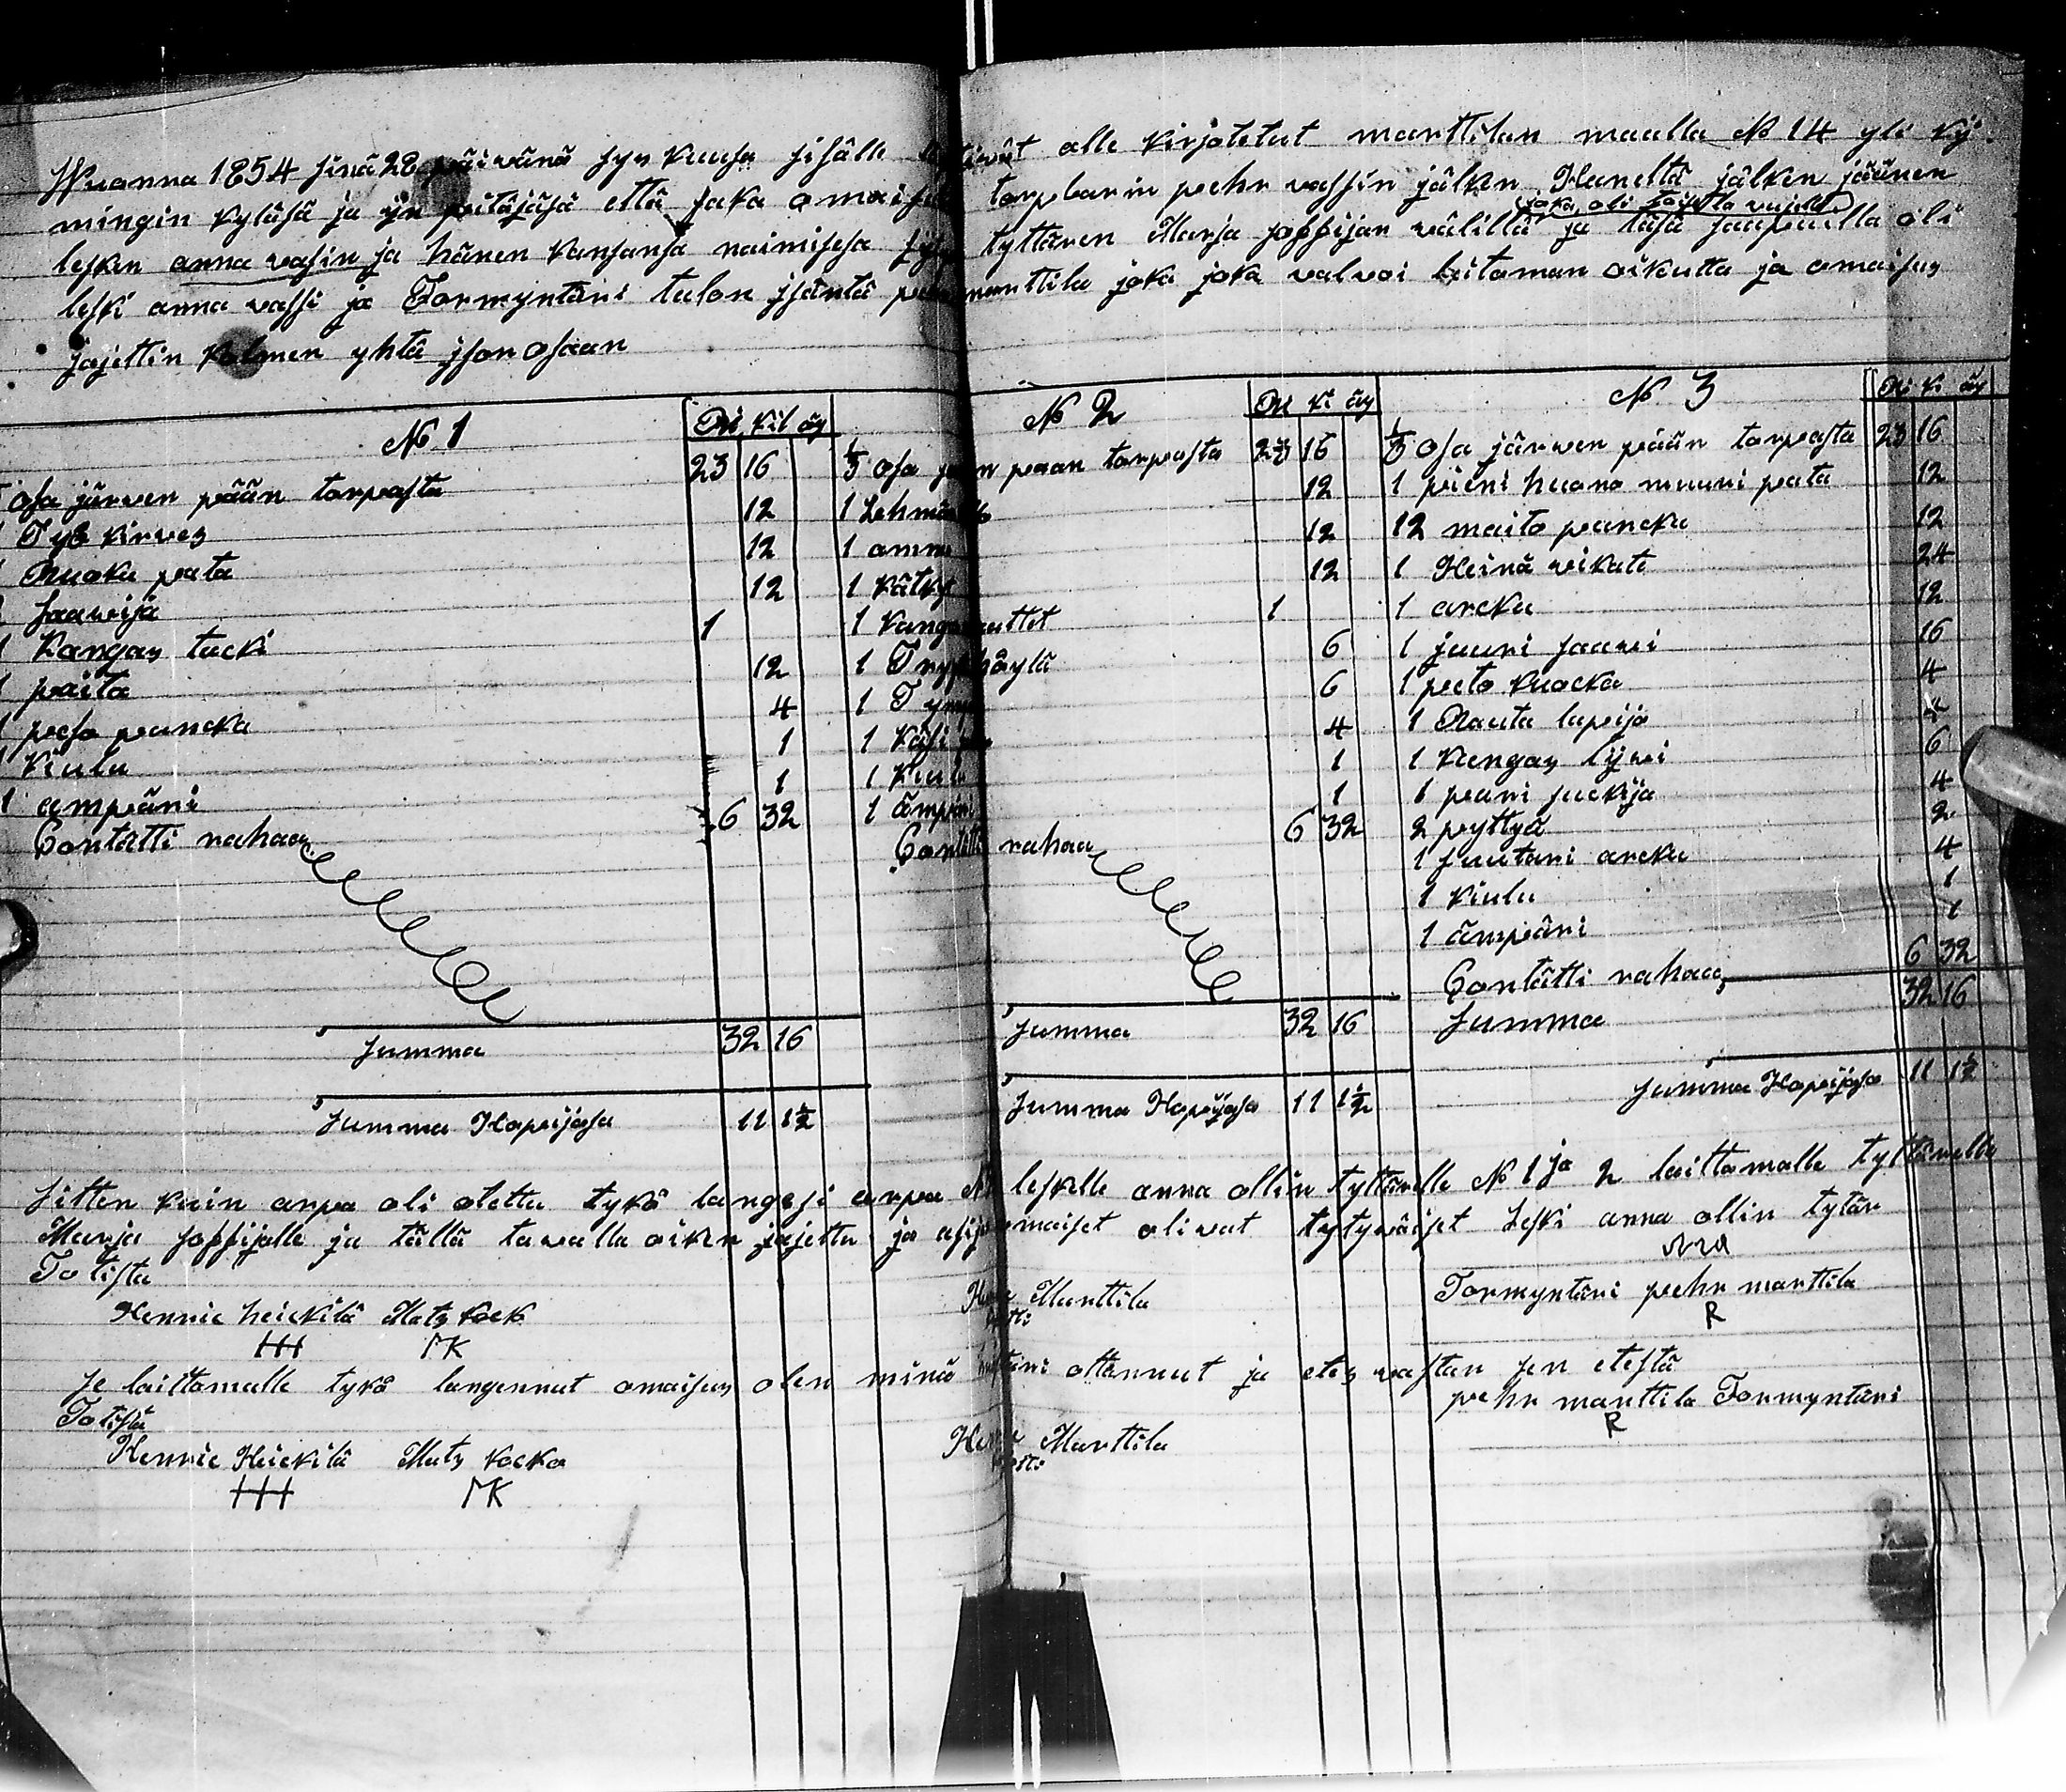 Wuonna 1854 sinä 28 päivänä syys kuusa sisälle alle kirjotetut marttilan maalla No 14 yli ky
mingin kyläsä ja ijn pitäjäsä että jaka omaisus torpbarin pehr vassin jälken Haneltä jälken jäänen
joka oli
lesken anna vasin ja hänen kansansa naimisesa tyttären Marja soffijan välillä ja täsä jaapaella oli
leski anna vassi ja Formyntäri talon jsäntä pehr marttila joka joka valvoi laitoman oikutta ja omaisus
jajettin kolmen yhtä json osaan
No 1
Ru kil äy
osa järwen pään torpasta 23 16
1 Tyä kirves 12
1 Ruoka pata 12
2 saavija 12
1 Kangas tucki 1
1 paita 12
1 pesa puncka 4
1 Kiulu 1
1 ämpäri 1
Contätti rahaa 6 32
Summa 32 16
Summa Hopeijasa 11 1½
No 2
Ru ki äy
⅓ osa pään torpasta 23 16
1 Lehmä 12
1 amme 12
1 kätky 12
1 1
1 höylä 6
1 6
1 Käsi 4
1 Kiulu 1
1 ämpäri 1
Contätti rahaa 6 32
Summa 32 16
Summa Hopeijasa 11 1½
No 3
Ru ki äy
⅓ osa järwen pään torpasta 23 16
1 pieni huono muuri pata 12
12 maito puncku 12
1 Heinä vikate 24
1 arcku 12
1 juuri saavi 16
1 peeto kuocka 4
1 Rauta lapija
1 Kengas lijvi 6
1 pari suckija 4
2 pyttyä 2
1 suutari arcku 4
1 Kiulu 1
1 ämpäri 1
Contätti rahaa 6 32
Summa 32 16
Summa Hopeijasa 11 1½
Sitten kuin arpa oli otettu tykö langesi arpa No leskelle anna ollin tyttärelle No 1 ja 2 laittamalle tyttärelle
Marja soffijalle ja tällä tavalla oiken jajettu ja asijomaiset olivat tytyväijset Leski anna ollin tytär
Totista
Hennic heickilä Mats kock Marttila Formyntäri pehr marttila
HH MK R
Se laittamalle tykö langennut omaisus olen minä ottannut ja etes vastan sen etestä
Totista pehr marttila Formyntäri
R
Hennic Heickilä Mats kocko Marttila
HH MK